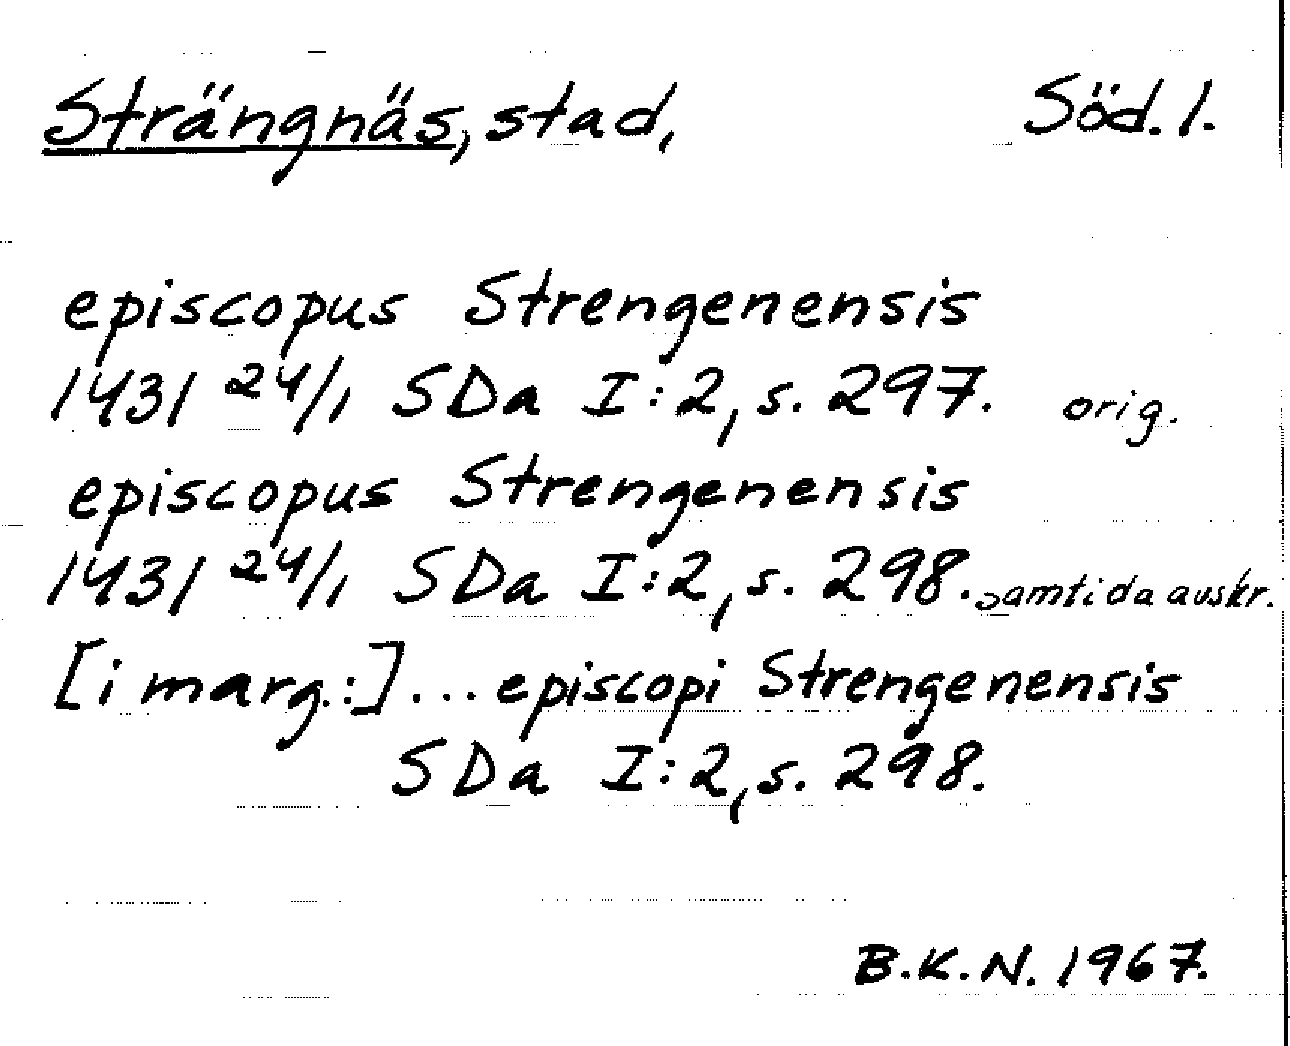 Strängnäs, stad, Söd. l.
episcopus Strengenensis
1431 24/1 SDa I:2, s. 297. orig.
episcopus Strengenensis
1431 24/1 SDa I:2, s. 298. samtida avskr.
[i marg.:] ... episcopi Strengenensis
SDa I:2, s. 298.
B.K.N. 1967.